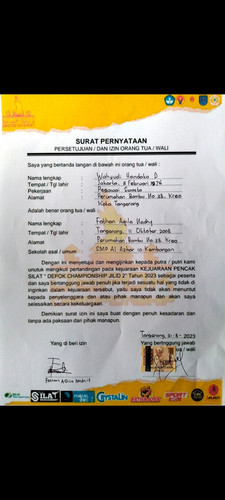 SURAT PERNYATAAN
PERSETUJUAN / DAN IZIN ORANG TUA / WALI
Saya yang bertanda tangan di bawah ini orang tua / wali :
Nama lengkap : Wahyudi Handoko D
Tempat / Tgl lahir : Jakarta, 8 Februari 1976
Pekerjaan : Pegawai Swasta
Alamat : Perumahan Bambu No 28. Kreo
Kota Tangerang
Adalah benar orang tua / wali :
Nama lengkap :
Tempat / Tgl lahir : Tangerang, 11 Oktober 2008
Alamat : Perumahan Bambu No 28. Kreo
Sekolah asal / umum : SMP Al Azhar Kembangan
Dengan ini menyetujui dan mengijinkan kepada putra / putri kami
unutuk mengikuti pertandingan pada kejuaraan KEJUARAAN PENCAK
SILAT " DEPOK CHAMPIONSHIP JILID 2" Tahun 2023 sebagai peserta
dan saya bertanggung jawab penuh jika terjadi sesuatu hal yang tidak di
inginkan dalam kejuaraan tersebut, yaitu saya tidak akan menuntut
kepada penyelenggara dan atau pihak manapun dan akan saya
selesaikan secara kekeluargaan.
Demikian surat izin ini saya buat dengan penuh kesadaran dan
tanpa ada paksaan dari pihak manapun.
Tangerang, 21-8-2023
Yang di beri izin
Yang bertnggung jawab
tua / wali
SILAT
CRYSTALIN